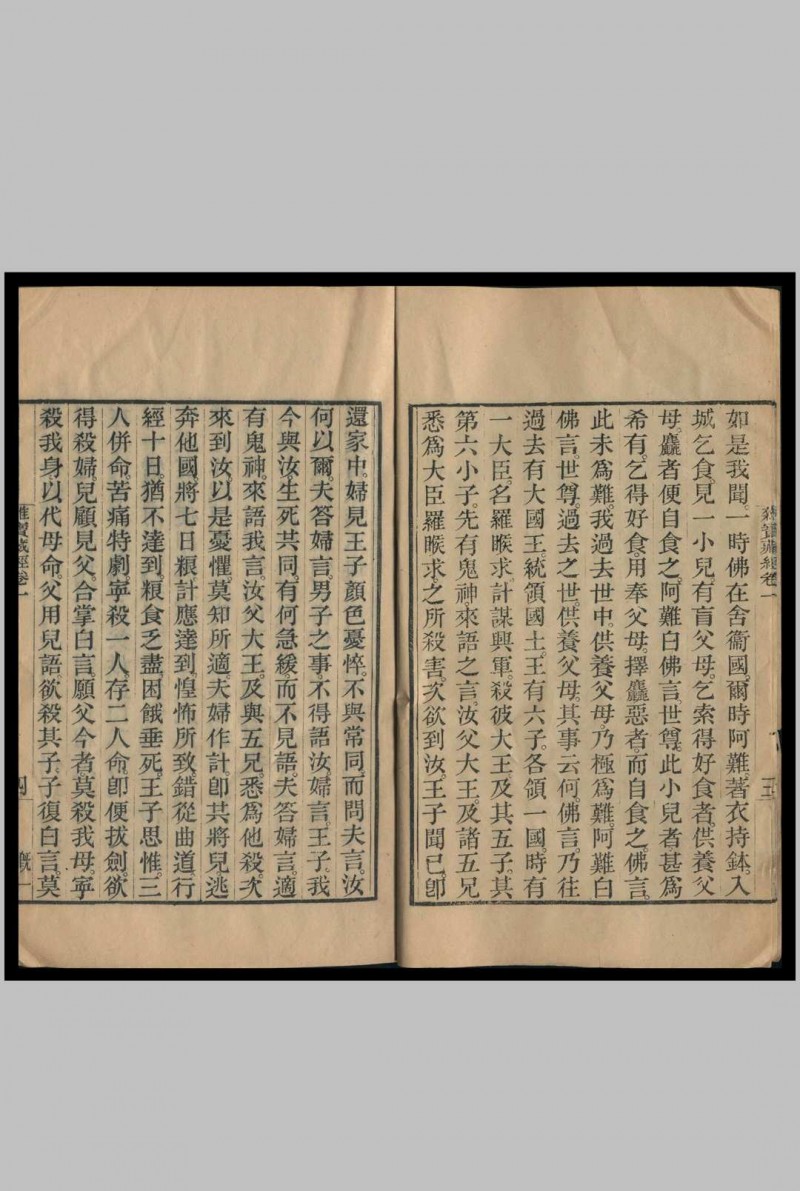 雜寶藏經卷一
三
如是我聞。一時佛在舍衞國。爾時阿難。著衣持鉢。入
城乞食。見一小兒。有盲父母。乞索得好食者。供養父
母。麤者便自食之。阿難白佛言。世尊。此小兒者。甚爲
希有。乞得好食。用奉父母。擇麤惡者。而自食之。佛言。
此未爲難。我過去世中。供養父母。乃極爲難。阿難白
佛言。世尊。過去之世。供養父母。其事云何。佛言。乃往
過去。有大國王。統領國土。王有六子。各領一國。時有
一大臣。名羅睺求。計謀興軍。殺彼大王。及其五子。其
第六小子。先有鬼神。來語之言。汝父大王。及諸五兄
悉爲大臣羅睺求之所殺害。次欲到汝。王子聞已。卽
還家中。婦見王子顏色憂悴。不與常同。而問夫言。汝
何以爾。夫答婦言。男子之事。不得語汝。婦言。王子。我
今與汝生死共同。有何急緩。而不見語。夫答婦言。適
有鬼神。來語我言。汝父大王。及與五兄。悉爲他殺。次
來到汝。以是憂懼。莫知所適。夫婦作計。卽共將兒。逃
奔他國。將七日粮。計應達到。惶怖所致。錯從曲道。行
經十日。猶不達到。粮食乏盡。困餓垂死。王子思惟。三
人併命。苦痛特劇。寧殺一人。存二人命。卽便拔劍。欲
得殺婦。兒顧見父。合掌白言。願父今者。莫殺我母。寧
殺我身。以代母命。父用兒語。欲殺其子。子復白言。莫
雜寶藏經卷一
四